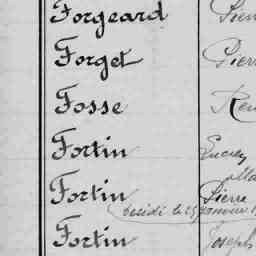 Forgeard Pierr
Forget Pierr
Fosse René
Fortin
Fortin Pierre
décédé le 25 janvier
Fortin Joseph